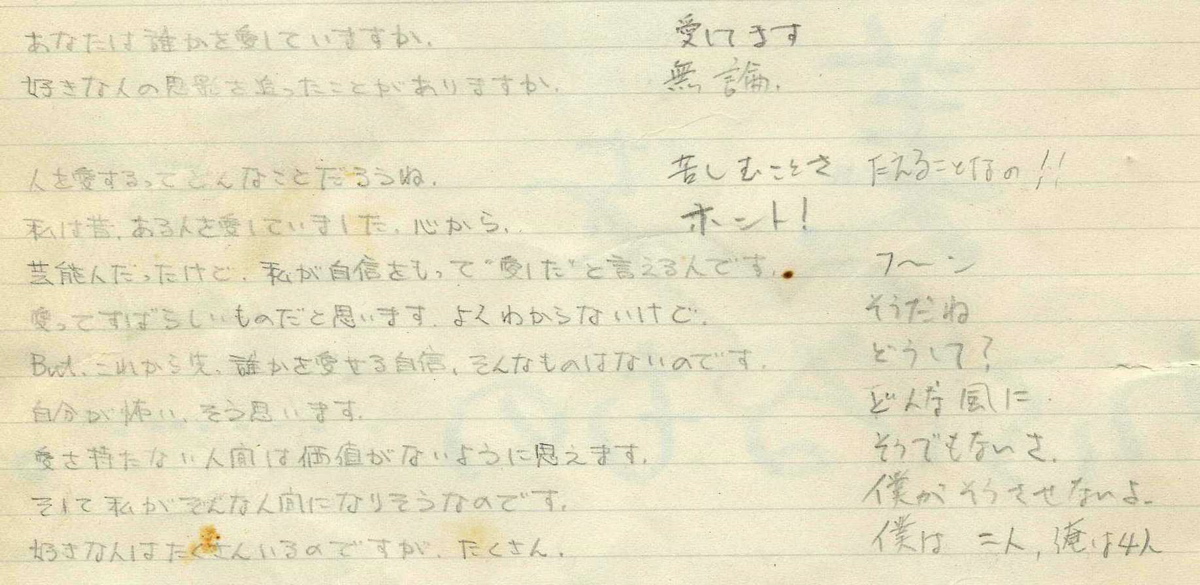 あなたは誰かを愛していますか. 愛してます
好きな人の思影を追ったことがありますか. 無論.
人を愛するってどんなことだろうね. 苦しむことさ たえることなの!!
私は昔、ある人を愛していました、心から、 ホント!
芸能人だったけど、私が自信をもって“愛した”と言える人です. フ〜ン
愛ってすばらしいものだと思います. よくわからないけど. そうだね
But、これから先、誰かを愛せる自信、そんなものはないのです. どうして?
自分が怖い、そう思います. どんな風に
愛を持たない人間は価値がないように思えます. そうでもないさ.
そして私がそんな人間になりそうなのです. 僕がそうさせないよ.
好きな人はたくさんいるのですが、たくさん. 僕は 二人, 俺は4人